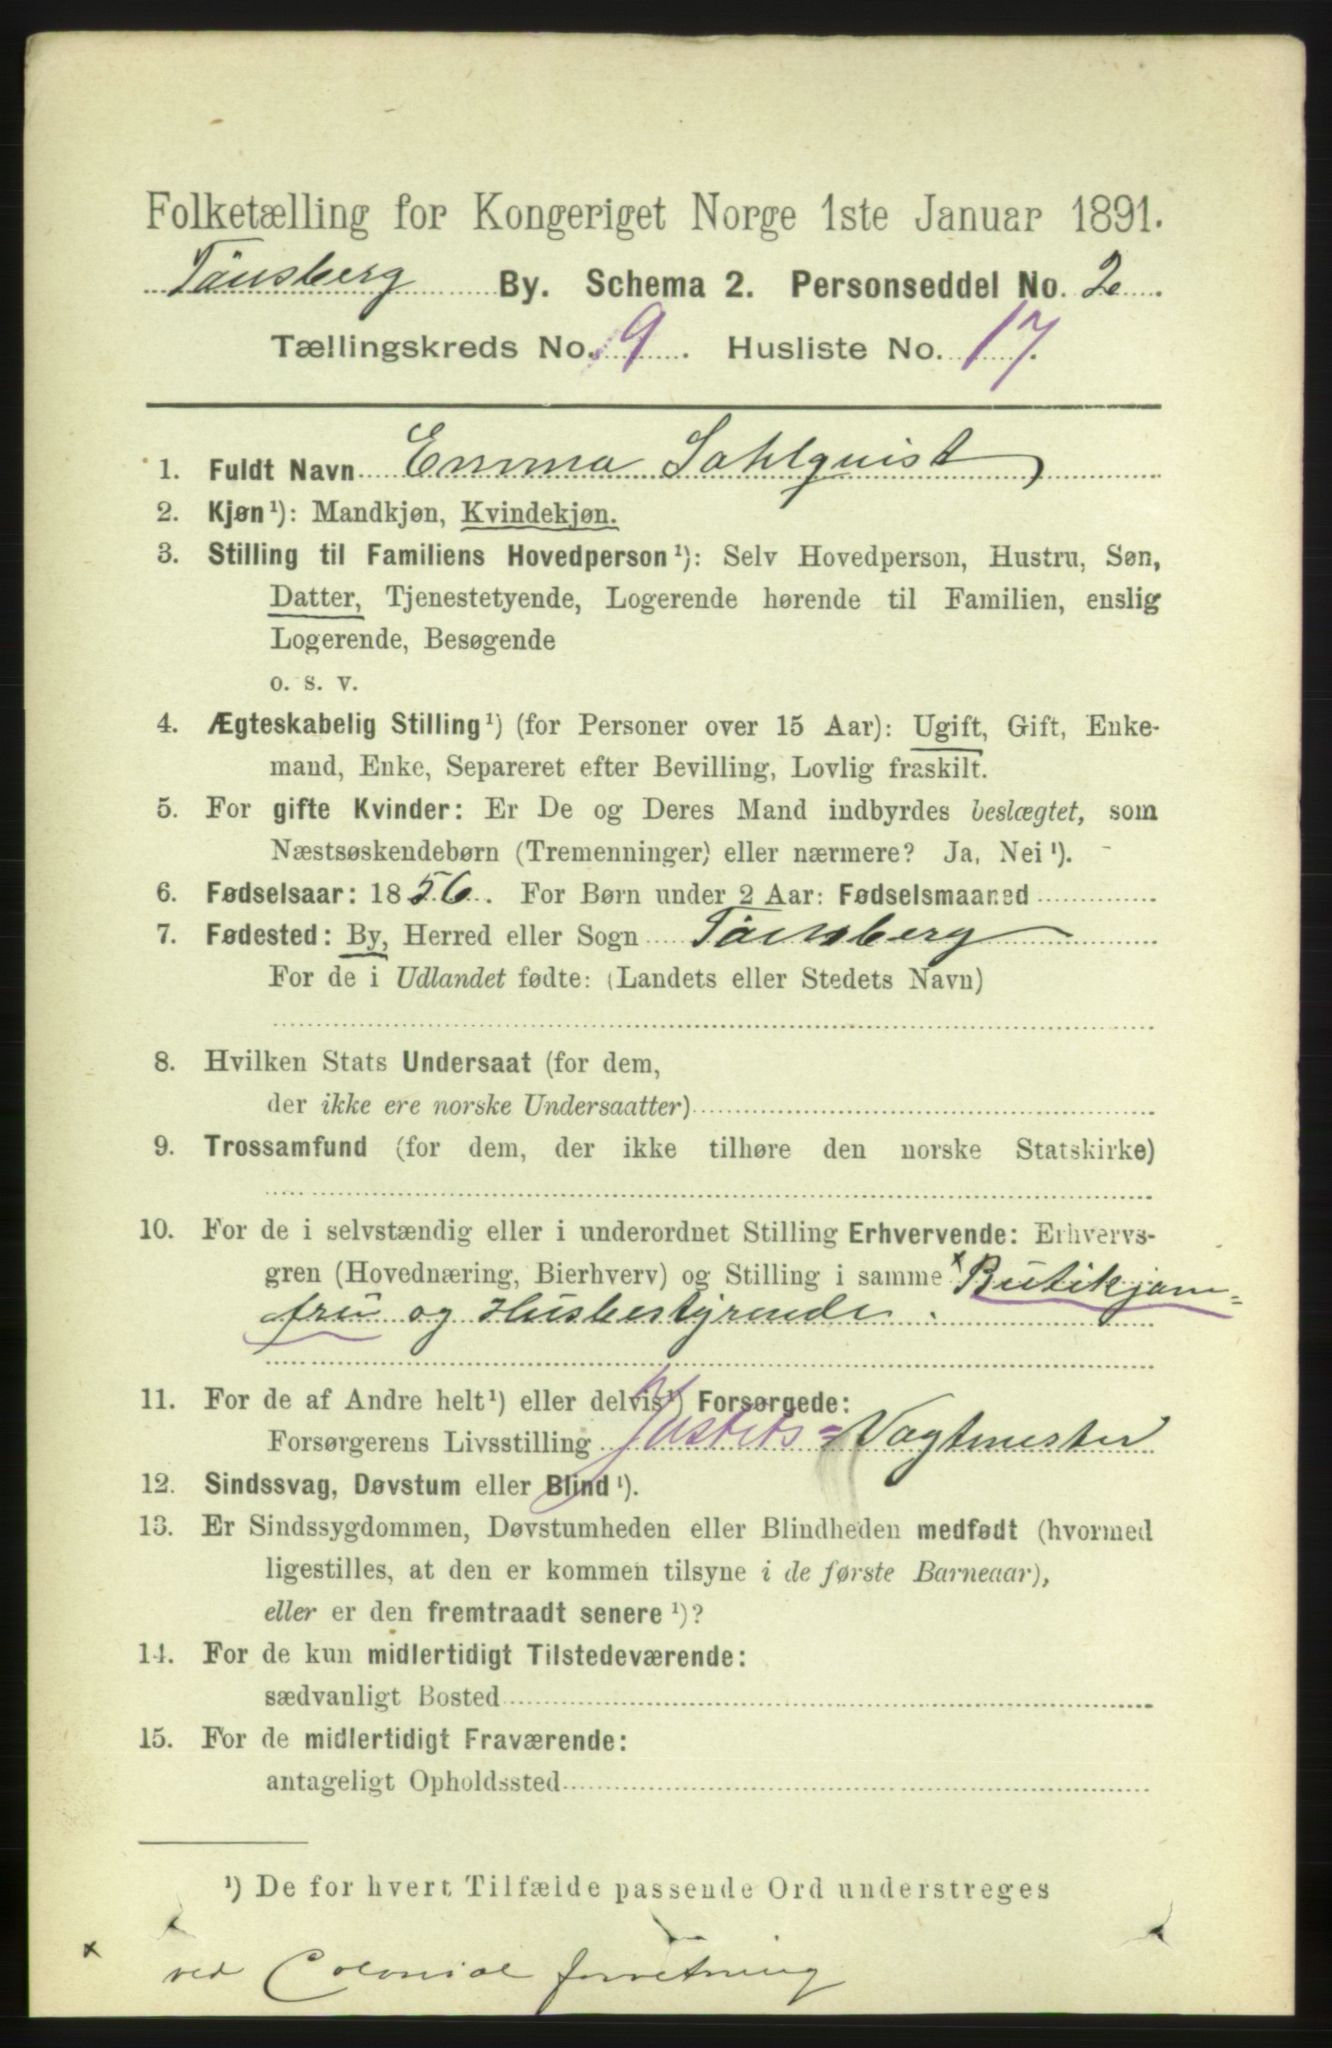 Folketælling for Kongeriget Norge 1ste Januar 1891.
Tønsberg By. Schema 2. Personseddel No. 2.
Tællingskreds No. 9. Husliste No. 17.
1. Fuldt Navn Emma Sahlquist
2. Kjøn¹): Mandkjøn, Kvindekjøn.
3. Stilling til Familiens Hovedperson¹): Selv Hovedperson, Hustru, Søn,
Datter, Tjenestetyende, Logerende hørende til Familien, enslig
Logerende, Besøgende
o. s. v.
4. Ægteskabelig Stilling¹) (for Personer over 15 Aar): Ugift, Gift, Enke-
mand, Enke, Separeret efter Bevilling, Lovlig fraskilt.
5. For gifte Kvinder: Er De og Deres Mand indbyrdes beslægtet, som
Næstsøskendebørn (Tremenninger) eller nærmere? Ja, Nei¹). -
6. Fødselsaar: 1856. For Børn under 2 Aar: Fødselsmaaned
7. Fødested: By, Herred eller Sogn Tønsberg
For de i Udlandet fødte: (Landets eller Stedets Navn)
8. Hvilken Stats Undersaat (for dem,
der ikke ere norske Undersaatter)
9. Trossamfund (for dem, der ikke tilhøre den norske Statskirke)
10. For de i selvstændig eller i underordnet Stilling Erhvervende: Erhvervs-
gren (Hovednæring, Bierhverv) og Stilling i samme x Butikjom=
fru og Husbestyrende.
11. For de af Andre helt¹) eller delvis¹) Forsørgede:
Forsørgerens Livsstilling Justits=Vagtmester
12. Sindssvag, Døvstum eller Blind¹).
13. Er Sindssygdommen, Døvstumheden eller Blindheden medfødt (hvormed
ligestilles, at den er kommen tilsyne i de første Barneaar),
eller er den fremtraadt senere¹)?
14. For de kun midlertidigt Tilstedeværende:
sædvanligt Bosted
15. For de midlertidigt Fraværende:
antageligt Opholdssted
¹) De for hvert Tilfælde passende Ord understreges
x ved Colonial forretning